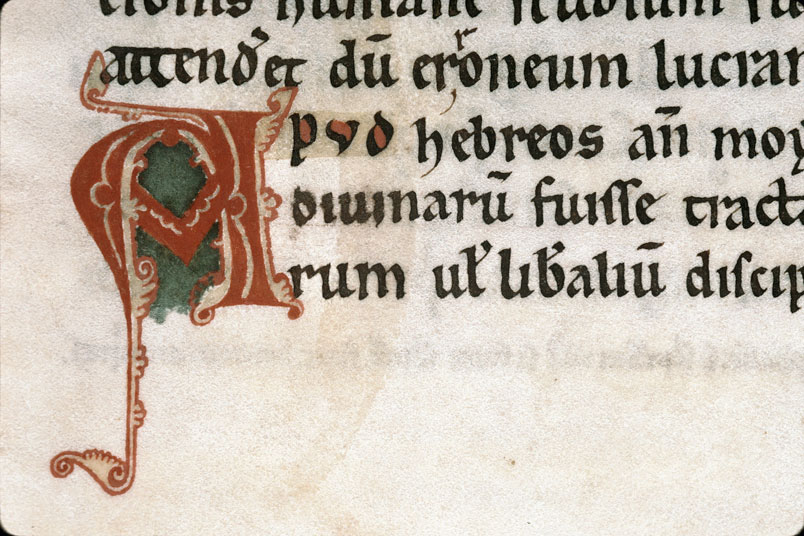 humane studium
attenderet dū erroneum lucrar
Apud hebreos añ moy
diuinarū fuisse tracta
rum ul' lib'aliū discip